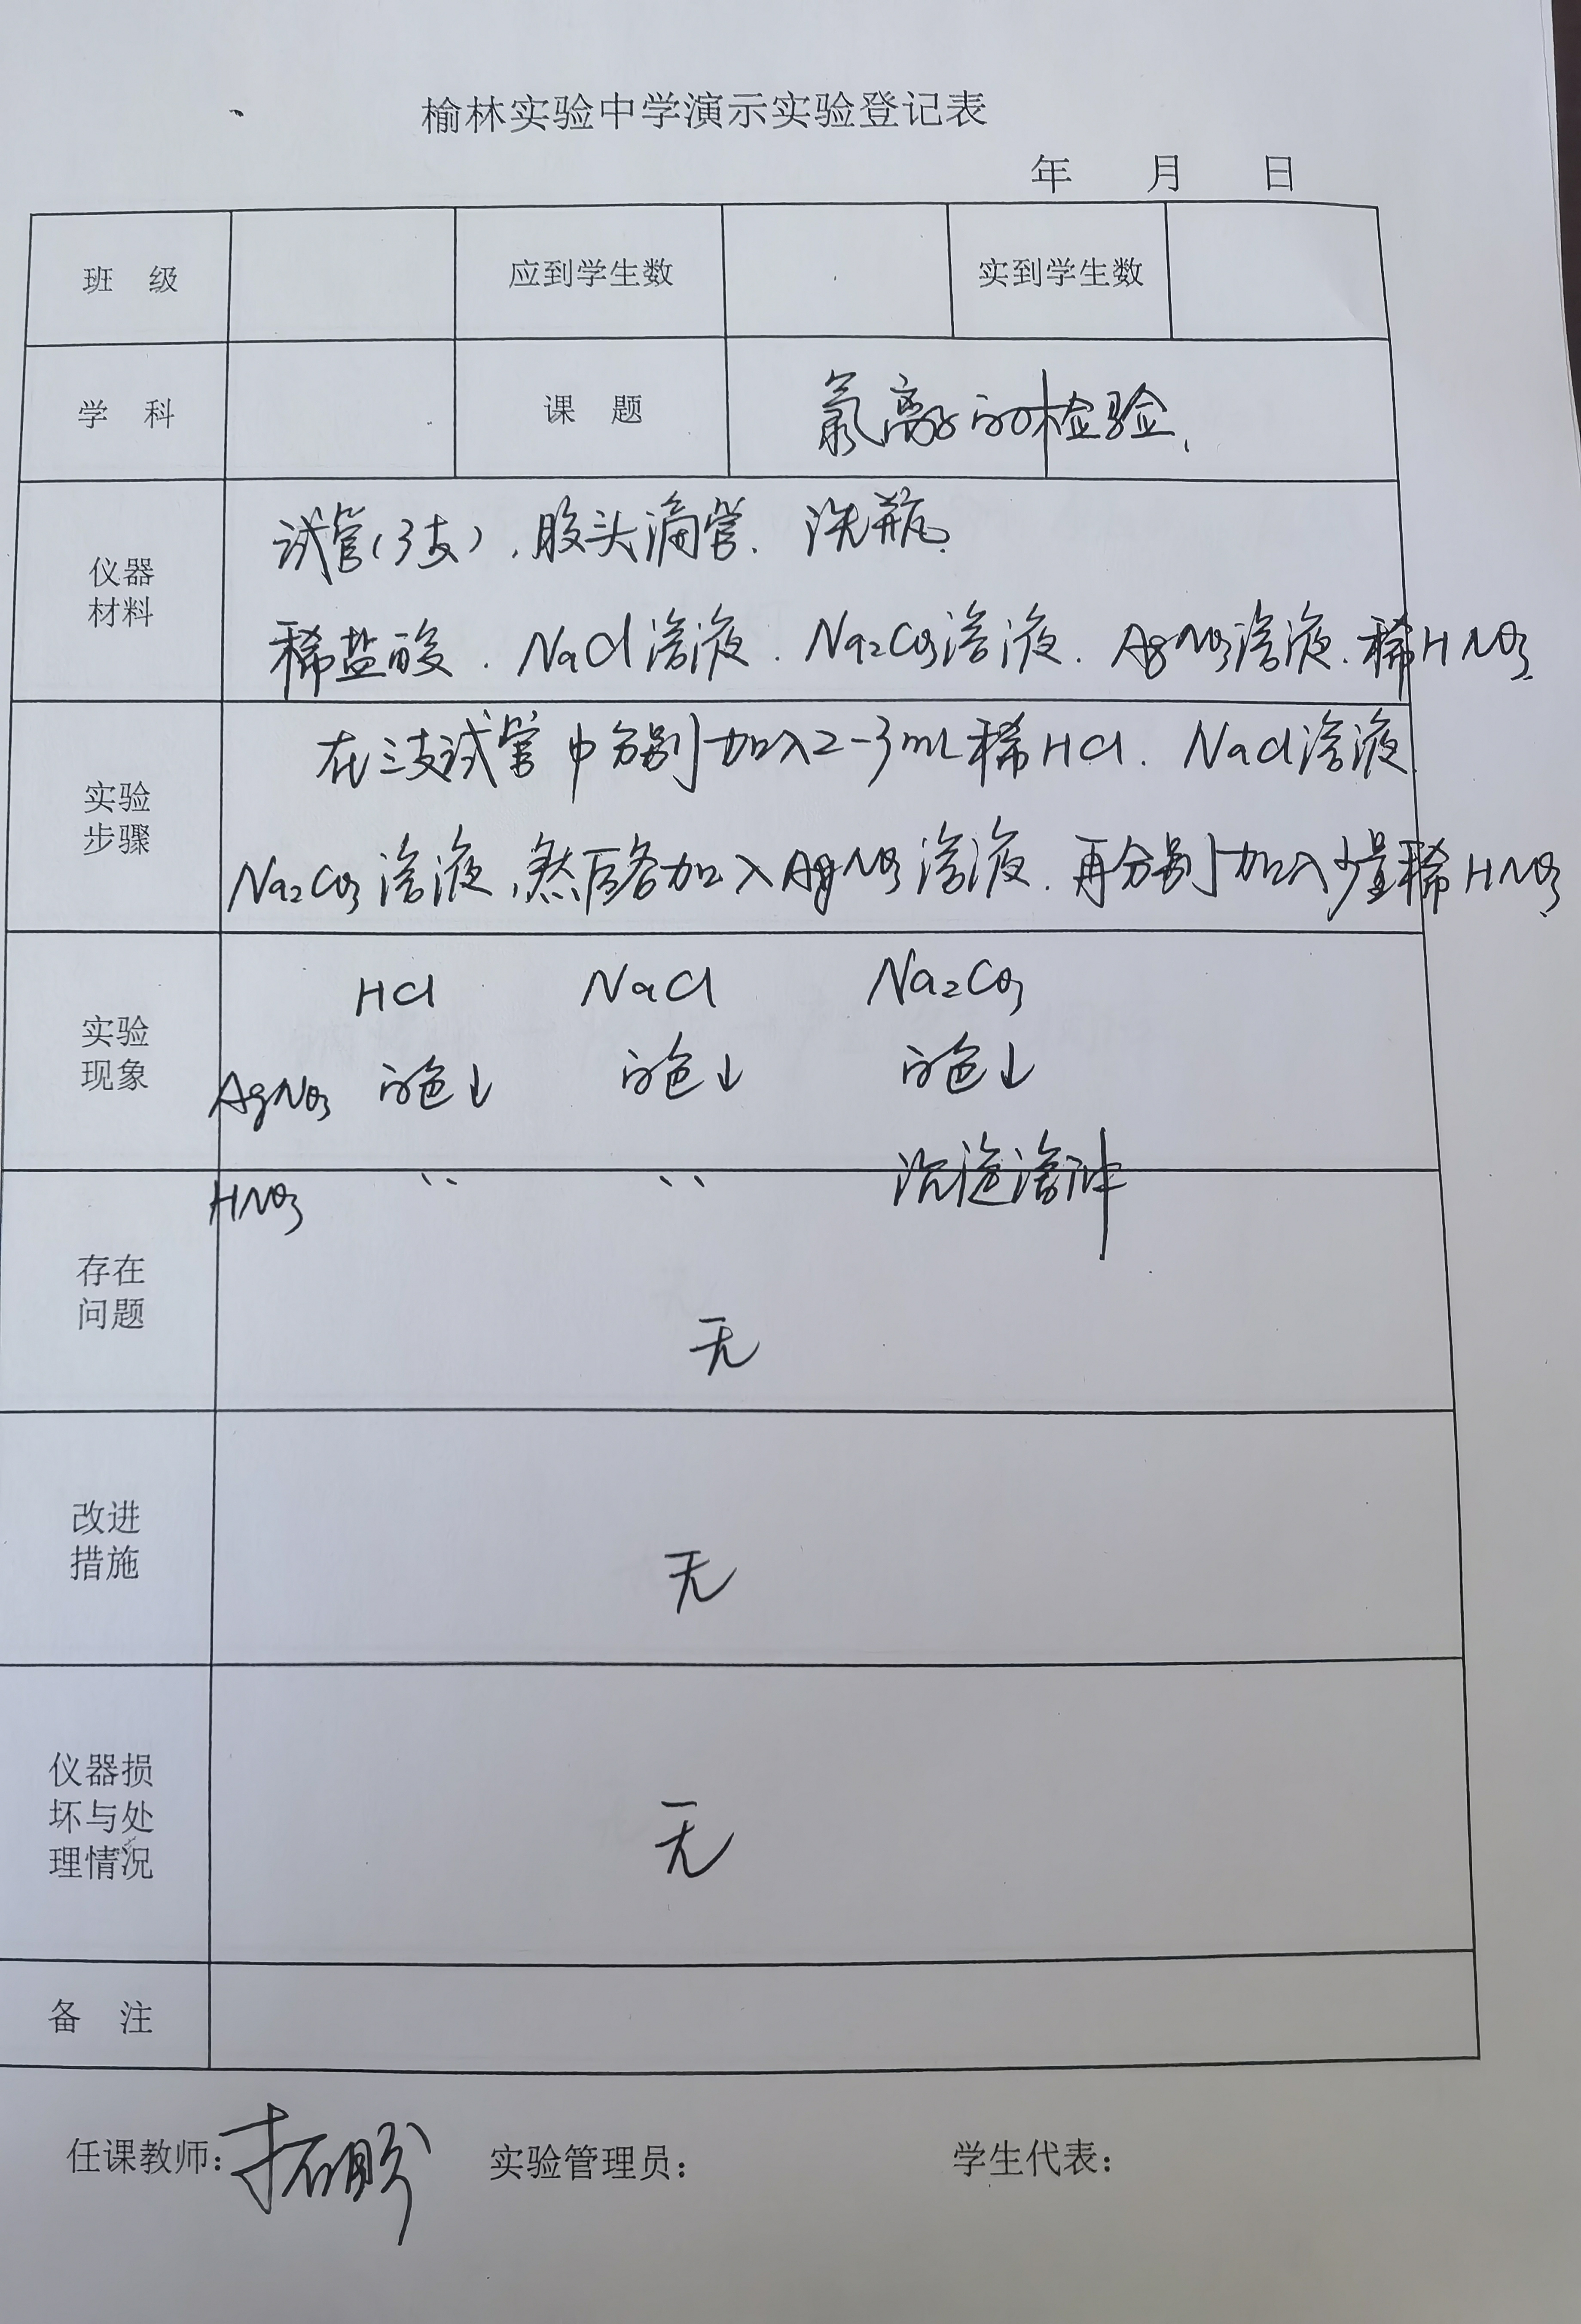 榆林实验中学演示实验登记表
年 月 日
班 级 应到学生数 实到学生数
学 科 课 题 氯离子的检验.
仪器
材料
试管(3支), 胶头滴管. 洗瓶.
稀盐酸. NaCl溶液. Na2CO3溶液. AgNO3溶液. 稀HNO3.
实验
步骤
在三支试管中分别加入2-3mL稀HCl. NaCl溶液.
Na2CO3溶液, 然后各加入AgNO3溶液. 再分别加入少量稀HNO3.
实验
现象
HCl NaCl Na2CO3
AgNO3 白色↓ 白色↓ 白色↓
HNO3 〃 〃 沉淀溶解
存在
问题
无
改进
措施
无
仪器损
坏与处
理情况
无
备 注
任课教师: 实验管理员: 学生代表: